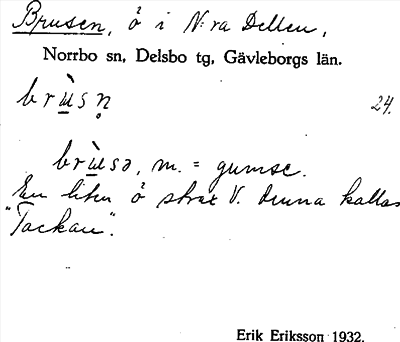 Brusen, ö i N:ra Dellen,
Norrbo sn, Delsbo tg, Gävleborgs län.
brùsn̥ 24.
brùsə, m. = gumse.
En liten ö strax V. denna kallas
"Tackan".
Erik Eriksson 1932.